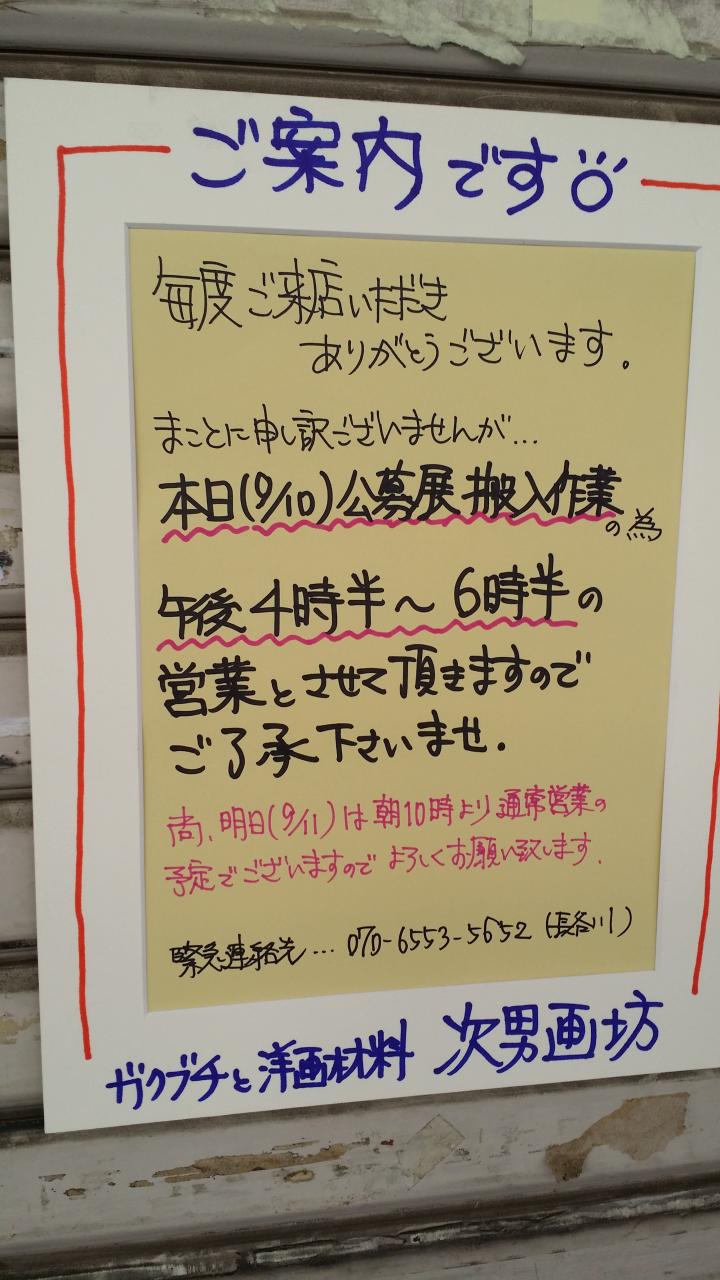 ご案内です
毎度ご来店いただき
ありがとうございます。
まことに申し訳ございませんが...
本日(9/10)公募展搬入作業
の為
午後4時半～6時半の
営業とさせて頂きますので
ご了承下さいませ.
尚、明日(9/11)は朝10時より通常営業の
予定でございますので よろしくお願い致します.
緊急連絡先... 070-6553-5652 (長谷川)
ガクブチと洋画材料 次男画坊